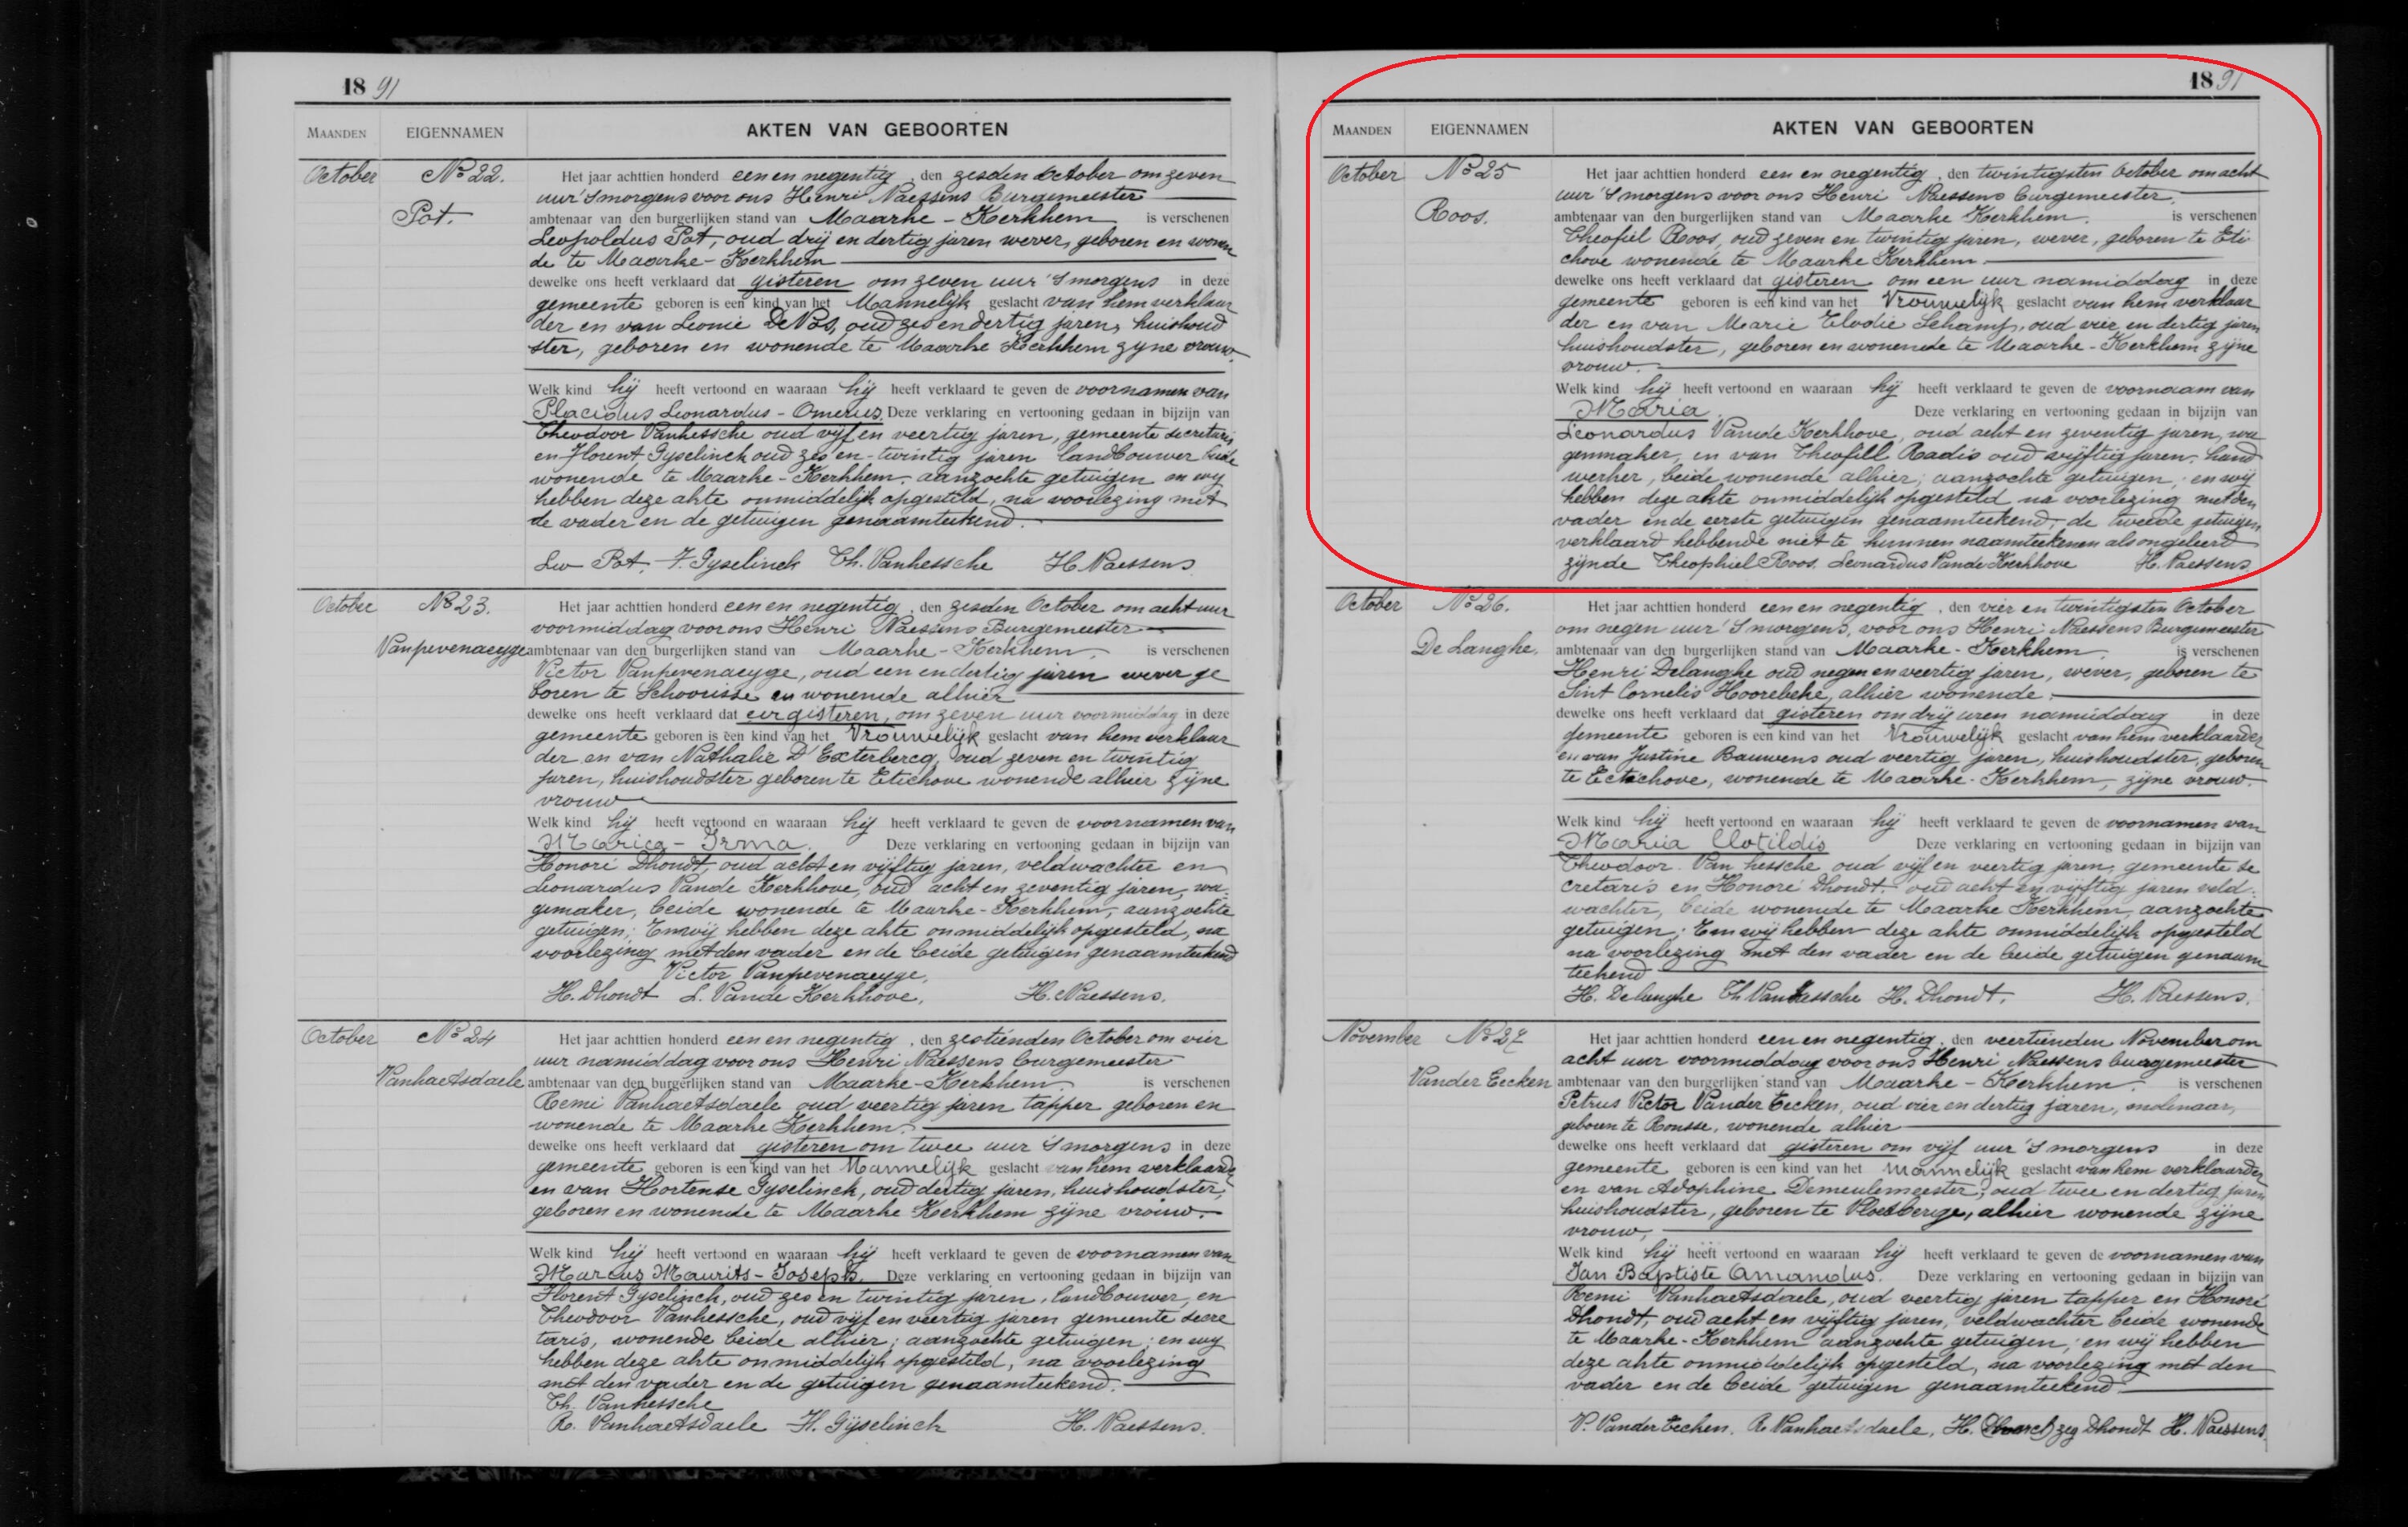 1891
MAANDEN EIGENNAMEN AKTEN VAN GEBOORTEN
October No 22.
Pot.
Het jaar achttien honderd een en negentig, den zesden October om zeven
uur 'S morgens voor ons Henri Naessens Burgemeester
ambtenaar van den burgerlijken stand van Maarke - Kerkhem is verschenen
Leopoldus Pot, oud drij en dertig jaren wever, geboren en wonen
de te Maarke - Kerkhem
dewelke ons heeft verklaard dat gisteren om zeven uur 'S morgens in deze
gemeente geboren is een kind van het Mannelijk geslacht van hem verklaar
der en van Leonie De Vos, oud zes en dertig jaren, huishoud
ster, geboren en wonende te Maarke Kerkhem zyne vrouw.
Welk kind hij heeft vertoond en waaraan hij heeft verklaard te geven de voornamen van
Placidus Leonardus - Omerus Deze verklaring en vertooning gedaan in bijzijn van
Theodoor Vanhessche oud vijf en veertig jaren, gemeente secretaris
en Florent Gyselinck oud zes en-twintig jaren landbouwer beide
wonende te Maarke - Kerkhem, aanzochte getuigen en wy
hebben deze akte onmiddelijk opgesteld, na voorlezing met
de vader en de getuigen genaamteekend.
Leo Pot. F. Gyselinck Th. Vanhessche H. Naessens
October No 23.
Vanpevenaeyge
Het jaar achttien honderd een en negentig, den zesden October om acht uur
voormiddag voor ons Henri Naessens Burgemeester
ambtenaar van den burgerlijken stand van Maarke - Kerkhem. is verschenen
Victor Vanpevenaeyge, oud een en dertig jaren wever ge
boren te Schoorisse en wonende alhier
dewelke ons heeft verklaard dat eergisteren, om zeven uur voormiddag in deze
gemeente geboren is een kind van het Vrouwelijk geslacht van hem verklaar
der en van Nathalie D'Exterbercq, oud zeven en twintig
jaren, huishoudster geboren te Etichove wonende alhier zijne
vrouw
Welk kind hij heeft vertoond en waaraan hij heeft verklaard te geven de voornamen van
Maria - Irma. Deze verklaring en vertooning gedaan in bijzijn van
Honoré Dhondt, oud acht en vijftig jaren, veldwachter en
Leonardus Vande Kerkhove, oud acht en zeventig jaren, wa-
gemaker, beide wonende te Maarke - Kerkhem, aanzochte
getuigen; En wij hebben deze akte onmiddelijk opgesteld, na
voorlezing met den vader en de beide getuigen genaamteekend
Victor Vanpevenaeyge,
H. Dhondt L. Vande Kerkhove, H. Naessens,
October No 24
Vanhaetsdaele
Het jaar achttien honderd een en negentig, den zestienden October om vier
uur namiddag voor ons Henri Naessens burgemeester
ambtenaar van den burgerlijken stand van Maarke - Kerkhem. is verschenen
Remi Vanhaetsdaele oud veertig jaren tapper geboren en
wonende te Maarke Kerkhem.
dewelke ons heeft verklaard dat gisteren om twee uur 'S morgens in deze
gemeente geboren is een kind van het Mannelijk geslacht van hem verklaarde
en van Hortense Gyselinck, oud dertig jaren, huishoudster,
geboren en wonende te Maarke Kerkhem zijne vrouw.
Welk kind hij heeft vertoond en waaraan hij heeft verklaard te geven de voornamen van
Marcus Maurits - Joseph. Deze verklaring en vertooning gedaan in bijzijn van
Florent Gyselinck, oud zes en twintig jaren, landbouwer, en
Theodoor Vanhessche, oud vijf en veertig jaren gemeente secre
taris, wonende beide alhier; aanzochte getuigen; en wy
hebben deze akte onmiddelijk opgesteld, na voorlezing
met den vader en de getuigen genaamteekend.
Th. Vanhessche
R. Vanhaetsdaele Fl. Gyselinck H. Naessens.
1891
MAANDEN EIGENNAMEN AKTEN VAN GEBOORTEN
October No 25
Roos.
Het jaar achttien honderd een en negentig, den twintigsten October om acht
uur 'S morgens voor ons Henri Naessens burgemeester
ambtenaar van den burgerlijken stand van Maarke Kerkhem. is verschenen
Theofiel Roos, oud zeven en twintig jaren, wever, geboren te Eti
chove wonende te Maarke Kerkhem.
dewelke ons heeft verklaard dat gisteren om een uur namiddag in deze
gemeente geboren is een kind van het Vrouwelijk geslacht van hem verklaar
der en van Marie Elodie Schamp, oud vier en dertig jaren
huishoudster, geboren en wonende te Maarke - Kerkhem zijne
vrouw.
Welk kind hij heeft vertoond en waaraan hij heeft verklaard te geven de voornaam van
Maria. Deze verklaring en vertooning gedaan in bijzijn van
Leonardus Vande Kerkhove, oud acht en zeventig jaren, wa
genmaker, en van Theofill Radis oud vijftig jaren, hand
werker, beide wonende alhier; aanzochte getuigen; en wij
hebben deze akte onmiddelijk opgesteld na voorlezing met den
vader en de eerste getuigen genaamteekend, de tweede getuigen
verklaard hebbende niet te kunnen naamteekenen als ongeleerd
zijnde Theophiel Roos. Leonardus Vande Kerkhove H. Naessens
October No 26.
De Langhe.
Het jaar achttien honderd een en negentig, den vier en twintigsten October
om negen uur 'S morgens, voor ons Henri Naessens Burgemeester
ambtenaar van den burgerlijken stand van Maarke - Kerkhem. is verschenen
Henri Delanghe oud negen en veertig jaren, wever, geboren te
Sint Cornelis Hoorebeke, alhier wonende.
dewelke ons heeft verklaard dat gisteren om drij uren namiddag in deze
gemeente geboren is een kind van het Vrouwelijk geslacht van hem verklaarder
en van Justine Bauwens oud veertig jaren, huishoudster, geboren
te Eetichove, wonende te Maarke - Kerkhem, zijne vrouw.
Welk kind hij heeft vertoond en waaraan hij heeft verklaard te geven de voornamen van
Maria Clotildis Deze verklaring en vertooning gedaan in bijzijn van
Theodoor Van hessche oud vijf en veertig jaren, gemeente se
cretaris en Honoré Dhondt. oud acht en vijftig jaren veld-
wachter, beide wonende te Maarke Kerkhem, aanzochte
getuigen; En wij hebben deze akte onmiddelijk opgesteld
na voorlezing met den vader en de beide getuigen genaam
teekend
H. Delanghe Th. Vanhassche H. Dhondt, H. Naessens.
November No 27
Vander Eecken
Het jaar achttien honderd een en negentig, den veertienden November om
acht uur voormiddag voor ons Henri Naessens burgemeester
ambtenaar van den burgerlijken stand van Maarke - Kerkhem. is verschenen
Petrus Victor Vander Eecken, oud vier en dertig jaren, molenaar,
geboren te Ronsse, wonende alhier
dewelke ons heeft verklaard dat gisteren om vijf uur 'S morgens in deze
gemeente geboren is een kind van het Mannelijk geslacht van hem verklaarder
en van Adophine Demeulemeester, oud twee en dertig jaren
huishoudster, geboren te alhier wonende zijne
vrouw,
Welk kind hij heeft vertoond en waaraan hij heeft verklaard te geven de voornamen van
Jan Baptiste Amandus. Deze verklaring en vertooning gedaan in bijzijn van
Remi Vanhaetsdaele, oud veertig jaren tapper en Honoré
Dhondt, oud acht en vijftig jaren, veldwachter beide wonende
te Maarke - Kerkhem aanzochte getuigen; en wij hebben
deze akte onmiddelijk opgesteld, na voorlezing met den
vader en de beide getuigen genaamteekend
V. Vander Eecken. R. Vanhaetsdaele, H. zeg Dhondt H. Naessens